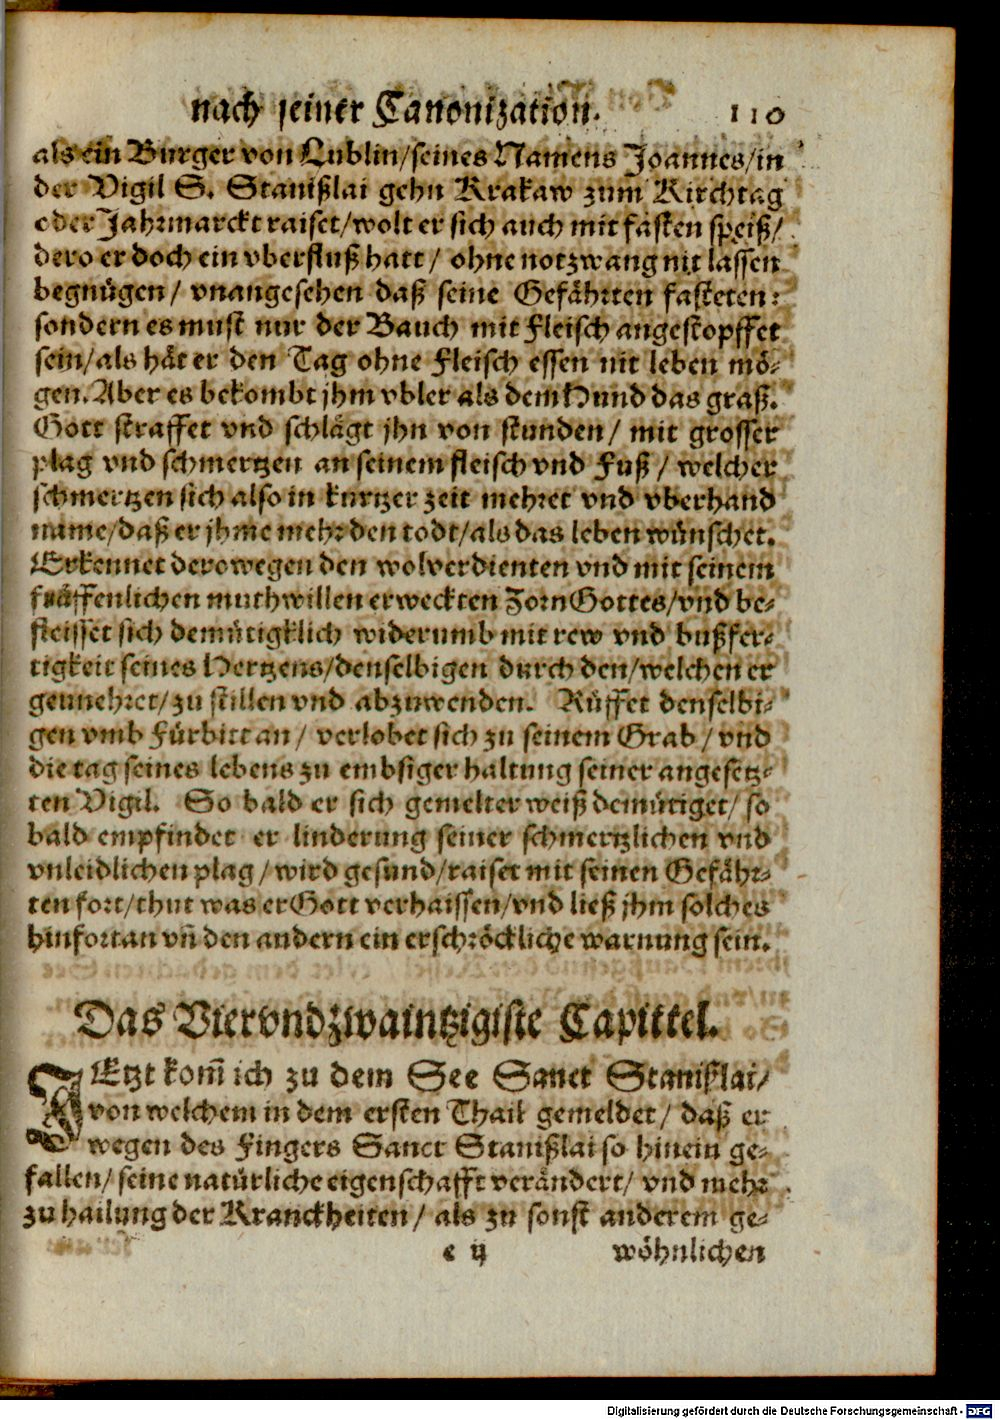 nach seiner Canonization. 110
als ein Burger von Lublin/seines Namens Joannes/in
der Vigil S. Stanißlai gehn Krakaw zum Kirchtag
oder Jahrmarckt raiset/wolt er sich auch mit fasten speiß/
dero er doch ein vberfluß hatt/ ohne notzwang nit lassen
begnügen/ vnangesehen daß seine Gefährten fasteten:
sondern es must nur der Bauch mit Fleisch angestopffet
sein/als hät er den Tag ohne Fleisch essen nit leben mö-
gen. Aber es bekombt jhm vbler als dem Hund das graß.
Gott straffet vnd schlägt jhn von stunden/ mit grosser
plag vnd schmertzen an seinem fleisch vnd Fuß/ welcher
schmertzen sich also in kurtzer zeit mehret vnd vberhand
name/daß er jhme mehr den todt/als das leben wünschet.
Erkennet derowegen den wolverdienten vnd mit seinem
fräffenlichen muthwillen erweckten Zorn Gottes/vnd be-
fleisset sich demütigklich widerumb mit rew vnd bußfer-
tigkeit seines Hertzens/denselbigen durch den/welchen er
geunehret/zu stillen vnd abzuwenden. Rüffet denselbi-
gen vmb Fürbitt an/ verlobet sich zu seinem Grab/ vnd
die tag seines lebens zu embsiger haltung seiner angesetz-
ten Vigil. So bald er sich gemelter weiß demütiget/ so
bald empfindet er linderung seiner schmertzlichen vnd
vnleidlichen plag/ wird gesund/raiset mit seinen Gefähr-
ten fort/thut was er Gott verhaissen/vnd ließ jhm solches
hinfortan vñ den andern ein erschröckliche warnung sein.
Das Viervndzwaintzigiste Capittel.
JEtzt kom̃ ich zu dem See Sanct Stanißlai/
von welchem in dem ersten Thail gemeldet/ daß er
wegen des Fingers Sanct Stanißlai so hinein ge-
fallen/ seine natürliche eigenschafft verändert/ vnd mehr
zu hailung der Kranckheiten/ als zu sonst anderem ge-
e ij wöhnlichen
Digitalisierung gefördert durch die Deutsche Forschungsgemeinschaft - DFG